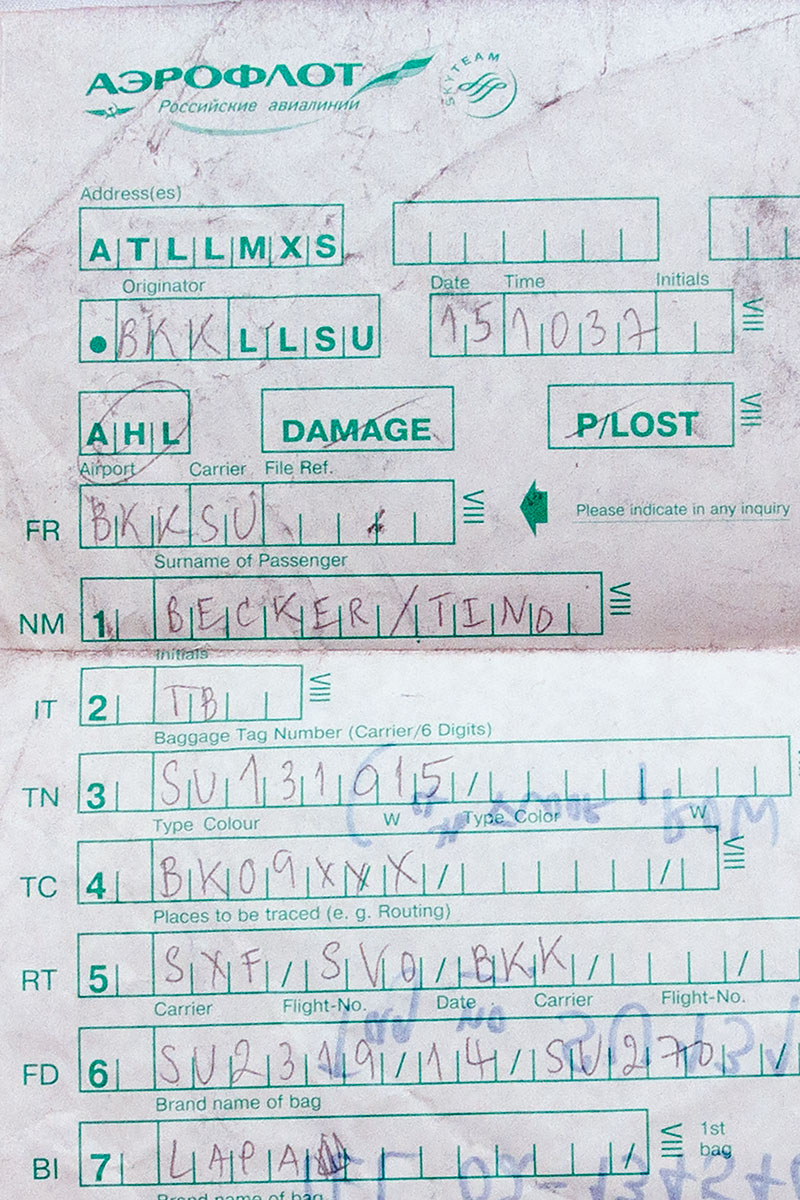 АЭРОФЛОТ
Российские авиалинии
SKYTEAM
Address(es)
ATLLMXS
Originator Date Time Initials
• BKK LLSU 15 1037
AHL DAMAGE P/LOST
Airport Carrier File Ref.
FR BKKSU Please indicate in any inquiry
Surname of Passenger
NM 1 BECKER/TINO
Initials
IT 2 TB
Baggage Tag Number (Carrier/6 Digits)
TN 3 SU131915/
Type Colour W Type Color W
TC 4 BK09XXX/ /
Places to be traced (e. g. Routing)
RT 5 SXF/SVO/BKK/ /
Carrier Flight-No. Date Carrier Flight-No.
FD 6 SU2319/14/SU270 /
Brand name of bag
BI 7 LAPA / 1st bag
Brand name of bag